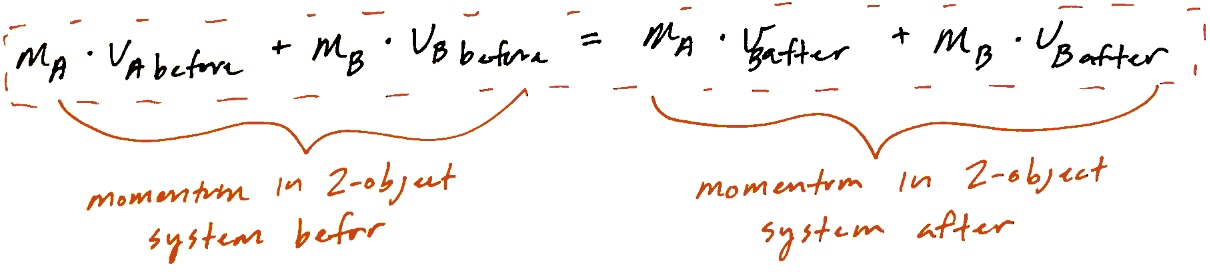 m_A · v_A before + m_B · v_B before = m_A · v_B after + m_B · v_B after
momentum in 2-object
system befor
momentum in 2-object
system after